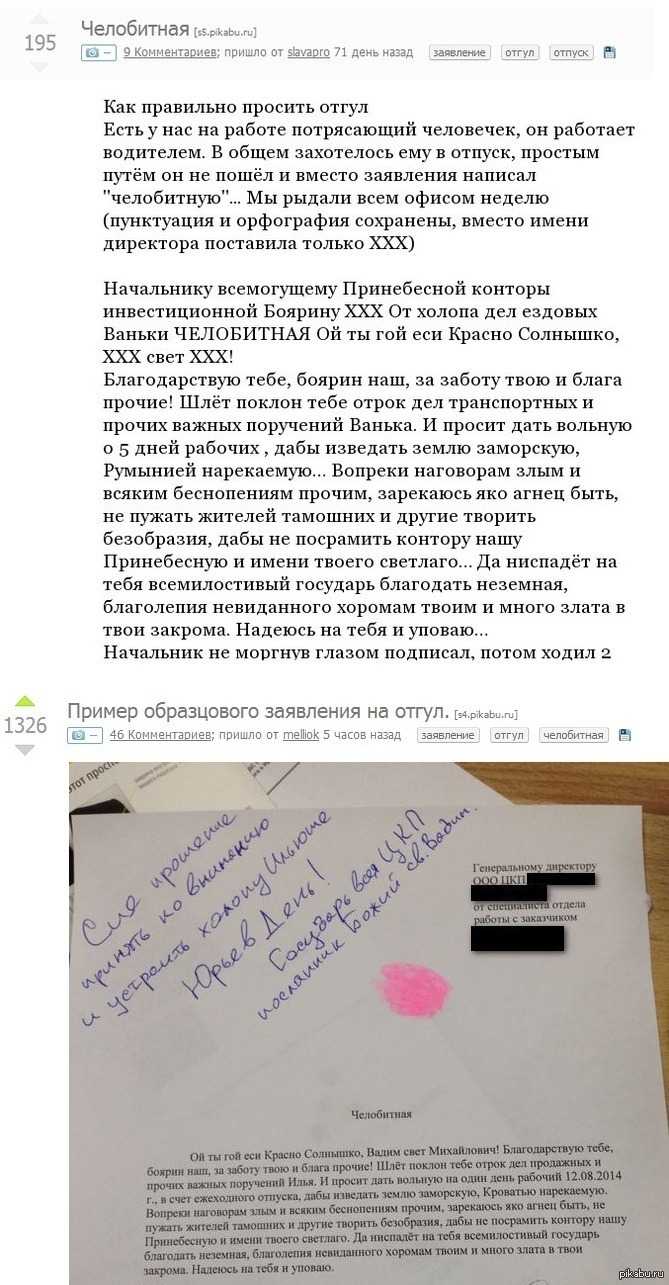 195
Челобитная [s5.pikabu.ru]
9 Комментариев; пришло от slavapro 71 день назад заявление отгул отпуск
Как правильно просить отгул
Есть у нас на работе потрясающий человечек, он работает
водителем. В общем захотелось ему в отпуск, простым
путём он не пошёл и вместо заявления написал
"челобитную"... Мы рыдали всем офисом неделю
(пунктуация и орфография сохранены, вместо имени
директора поставила только XXX)
Начальнику всемогущему Принебесной конторы
инвестиционной Боярину XXX От холопа дел ездовых
Ваньки ЧЕЛОБИТНАЯ Ой ты гой еси Красно Солнышко,
XXX свет XXX!
Благодарствую тебе, боярин наш, за заботу твою и блага
прочие! Шлёт поклон тебе отрок дел транспортных и
прочих важных поручений Ванька. И просит дать вольную
о 5 дней рабочих , дабы изведать землю заморскую,
Румынией нарекаемую... Вопреки наговорам злым и
всяким беснопениям прочим, зарекаюсь яко агнец быть,
не пужать жителей тамошних и другие творить
безобразия, дабы не посрамить контору нашу
Принебесную и имени твоего светлаго... Да ниспадёт на
тебя всемилостивый государь благодать неземная,
благолепия невиданного хоромам твоим и много злата в
твои закрома. Надеюсь на тебя и уповаю...
Начальник не моргнув глазом подписал, потом ходил 2
1326
Пример образцового заявления на отгул. [s4.pikabu.ru]
46 Комментариев; пришло от melliok 5 часов назад заявление отгул челобитная
этот прост
Сие прошение
принять ко вниманию
и устроить холопу Ильюше
Юрьев День!
Государь всея ЦКП
посланник Божий св. Вадим.
Генеральному директору
ООО ЦКП
от специалиста отдела
работы с заказчиком
Челобитная
Ой ты гой еси Красно Солнышко, Вадим свет Михайлович! Благодарствую тебе,
боярин наш, за заботу твою и блага прочие! Шлёт поклон тебе отрок дел продажных и
прочих важных поручений Илья. И просит дать вольную на один день рабочий 12.08.2014
г., в счет ежеходного отпуска, дабы изведать землю заморскую, Кроватью нарекаемую.
Вопреки наговорам злым и всяким беснопениям прочим, зарекаюсь яко агнец быть, не
пужать жителей тамошних и другие творить безобразия, дабы не посрамить контору нашу
Принебесную и имени твоего светлаго. Да ниспадёт на тебя всемилостивый государь
благодать неземная, благолепия невиданного хоромам твоим и много злата в твои
закрома. Надеюсь на тебя и уповаю.
pikabu.ru